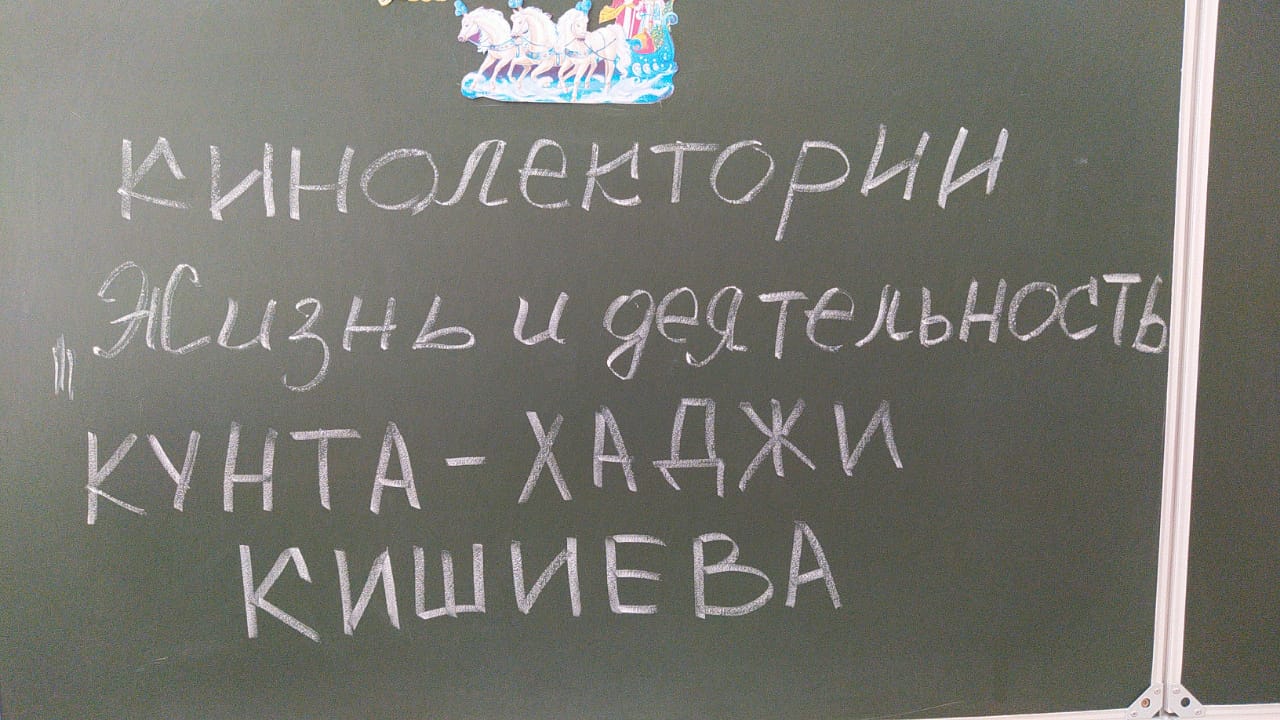 КИНОЛЕКТОРИИ
„Жизнь и деятельность
КУНТА-ХАДЖИ
КИШИЕВА